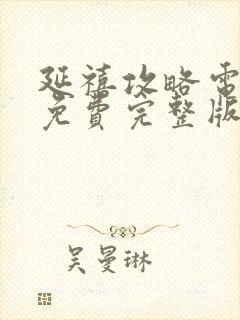 延禧攻略電
免費完整版
吴曼琳